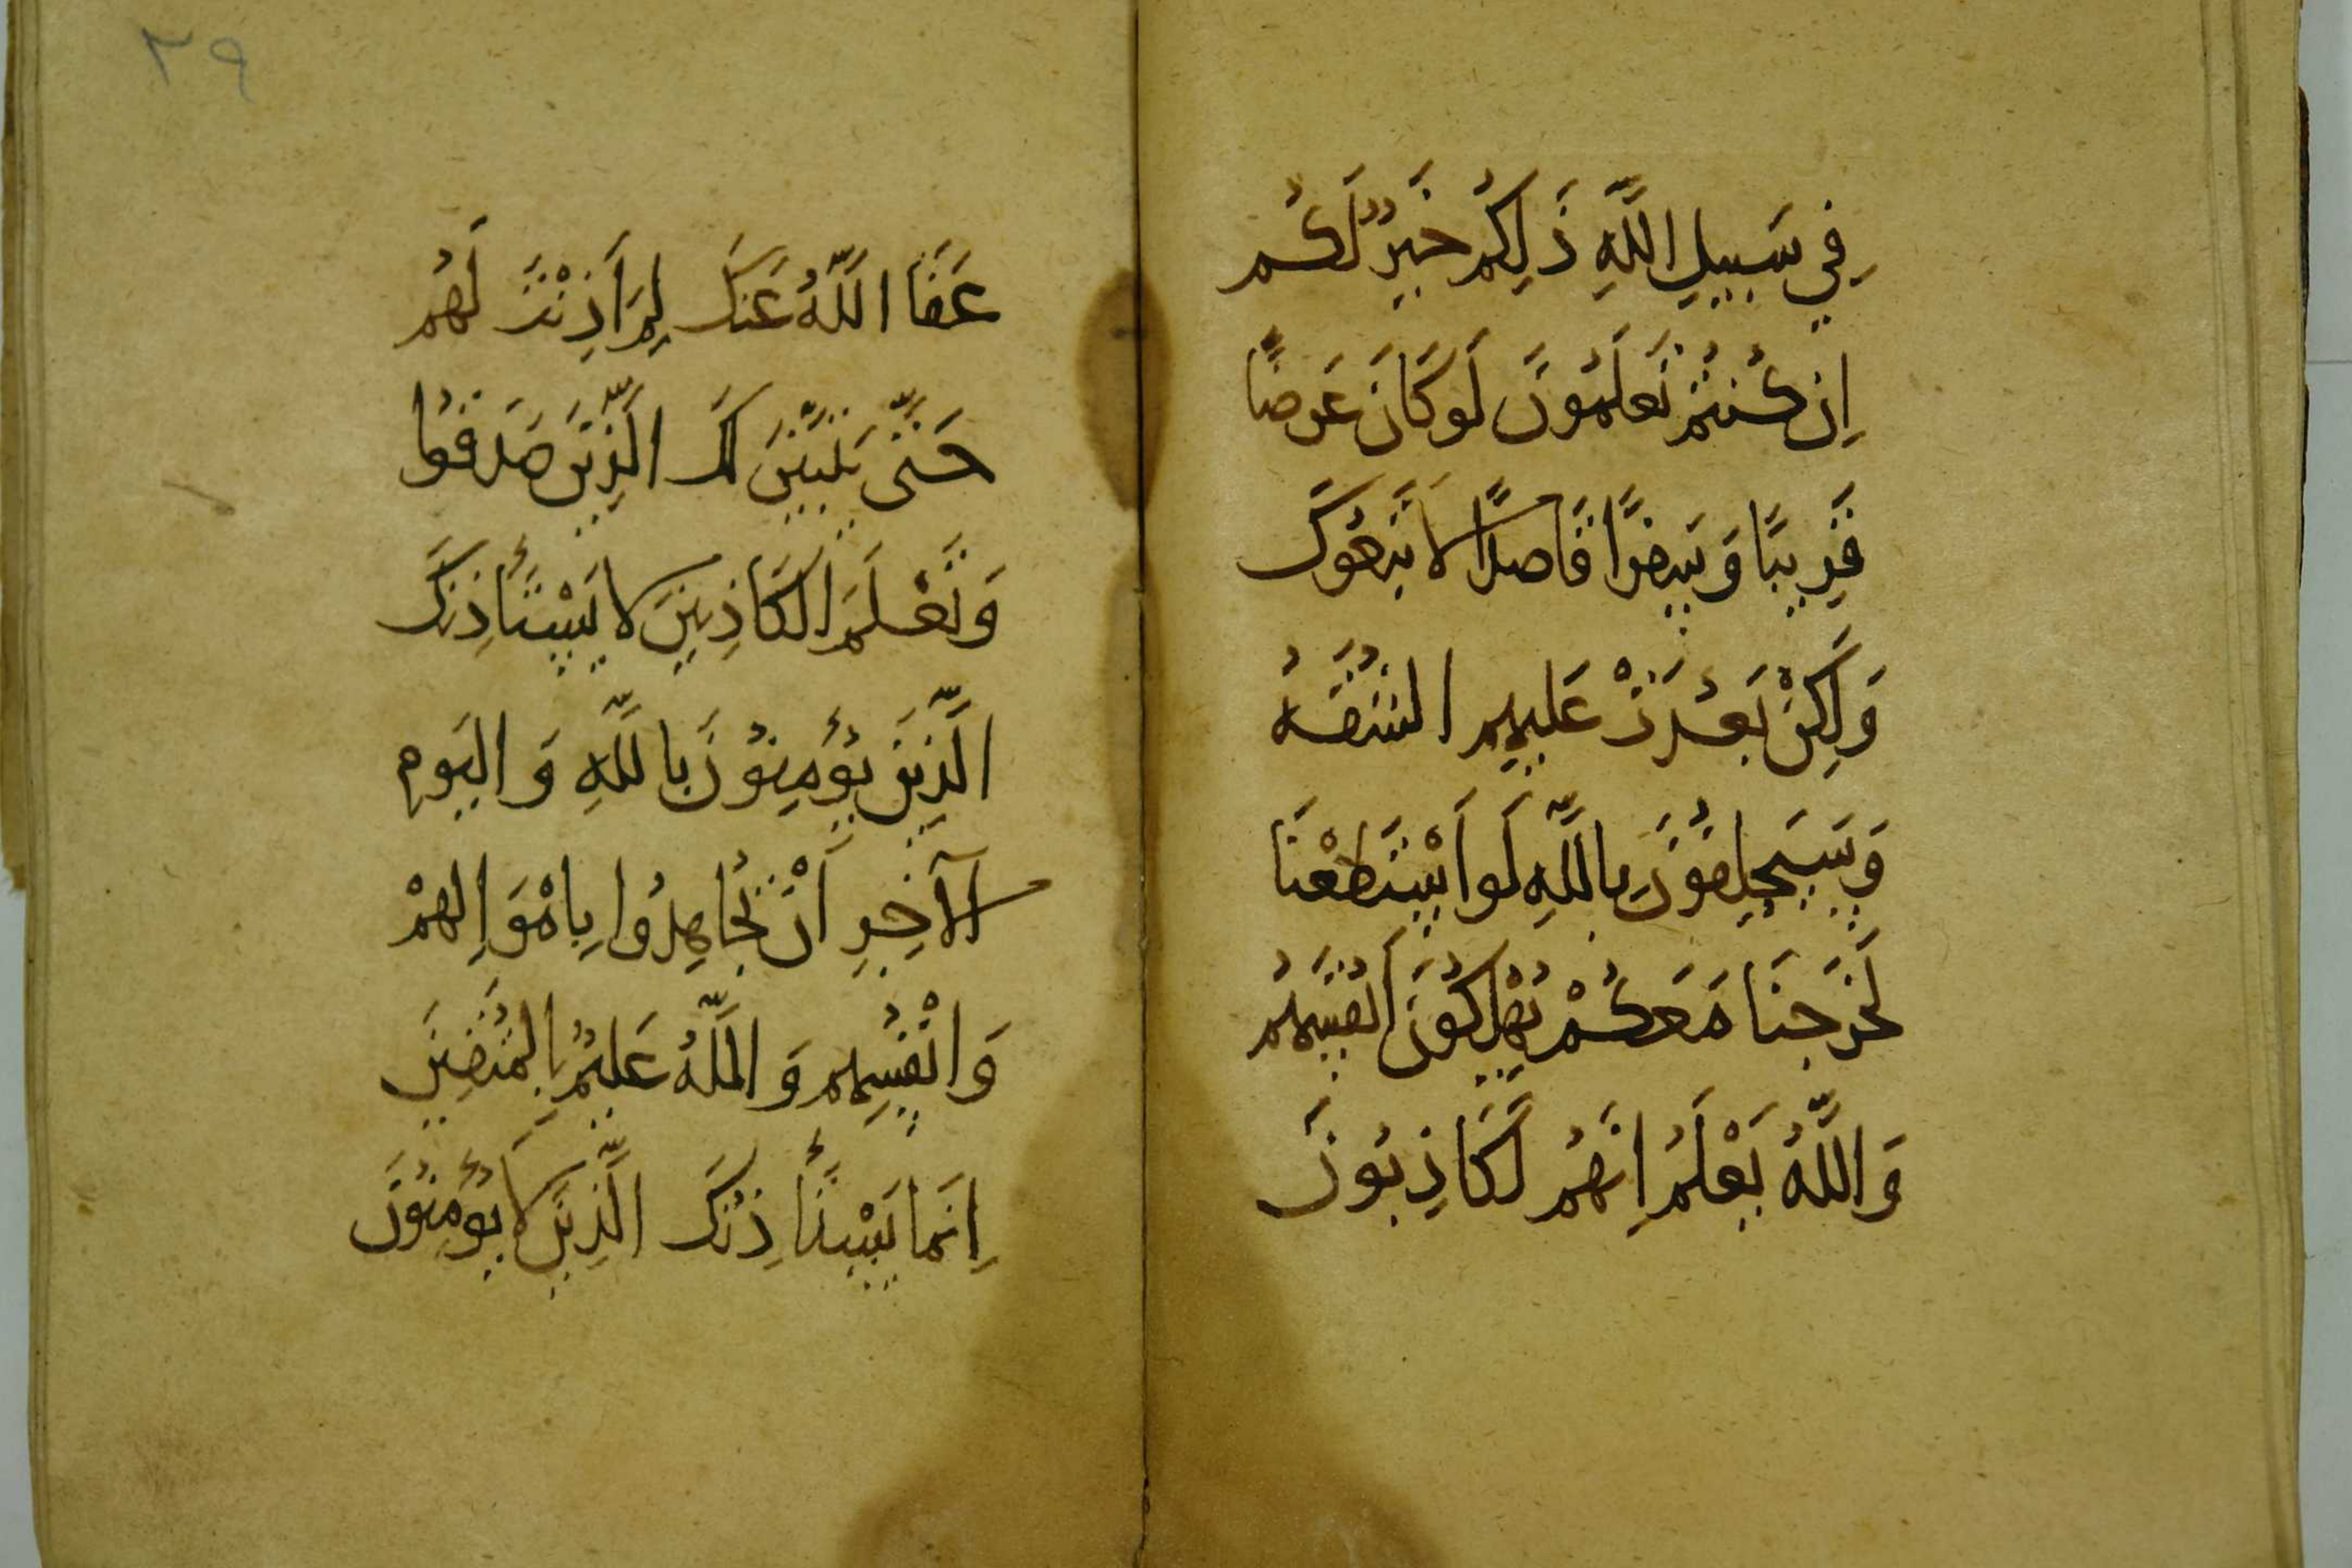 فِي سَبِيلِ اللَّهِ ذَلِكُمْ خَيْرٌ لَكُم
اِن كُنتُم تَعلَمُونَ لَو كَانَ عَرَضًا
قَرِيبًا وَسَفَرًا قَاصِدًا لَاتَّبَعُوكَ
وَلَكِنْ بَعُدَتْ عَلَيهِم الشُّقَّةُ
وَسَيَحلِفُونَ بِاللَّهِ لَو اسْتَطَعْنَا
لَخَرَجنَا مَعَكُمْ يُهْلِكُونَ اَنفُسَهُم
وَاللَّهُ يَعْلَمُ اِنَّهُم لَكَاذِبُونَ
٢٩
عَفَا اللَّهُ عَنكَ لِمَ اَذِنْتَ لَهُم
حَتَّى يَتَبَيَّنَ لَكَ الَّذِينَ صَدَقُوا
وَتَعْلَمَ الكَاذِبِينَ لَا يَسْتَأذِنُكَ
الَّذِينَ يُؤمِنُونَ بِاللَّهِ وَاليَومِ
الآخِرِ اَنْ تُجَاهِدُوا بِاَمْوَالِهِمْ
وَاَنْفُسِهِم وَاللَّهُ عَلِيمٌ بِالمُتَّقِينَ
اِنَّمَا يَسْتَأذِنُكَ الَّذِينَ لَا يُؤمِنُونَ